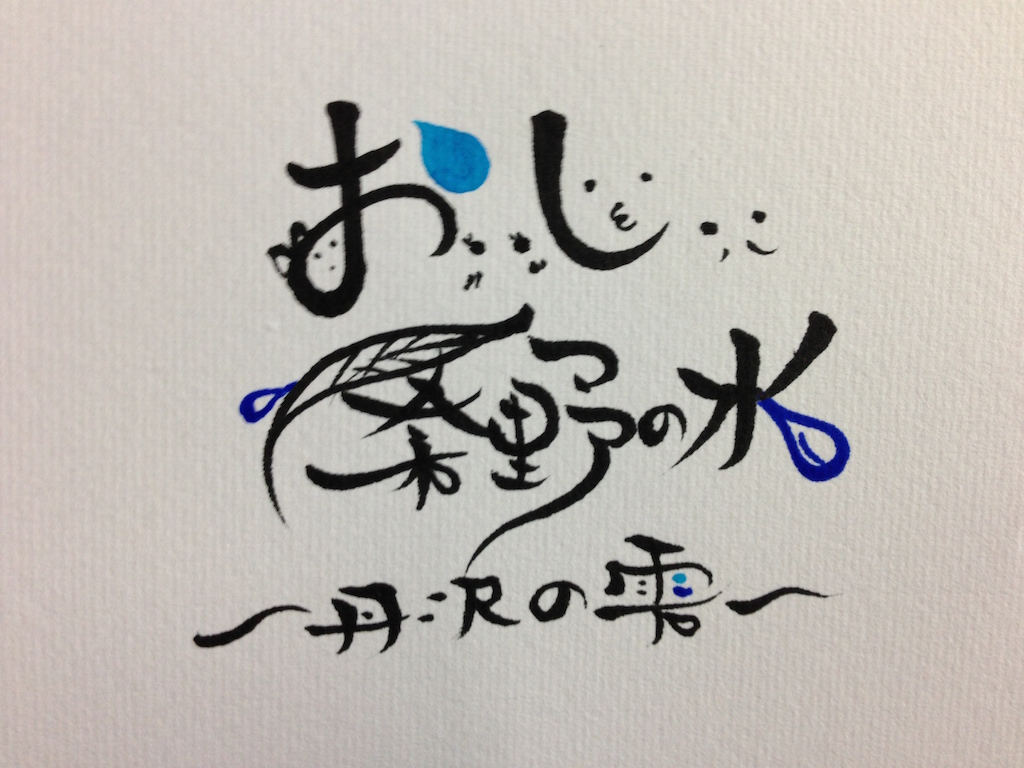 おいしい
秦野の水
～丹沢の雫～